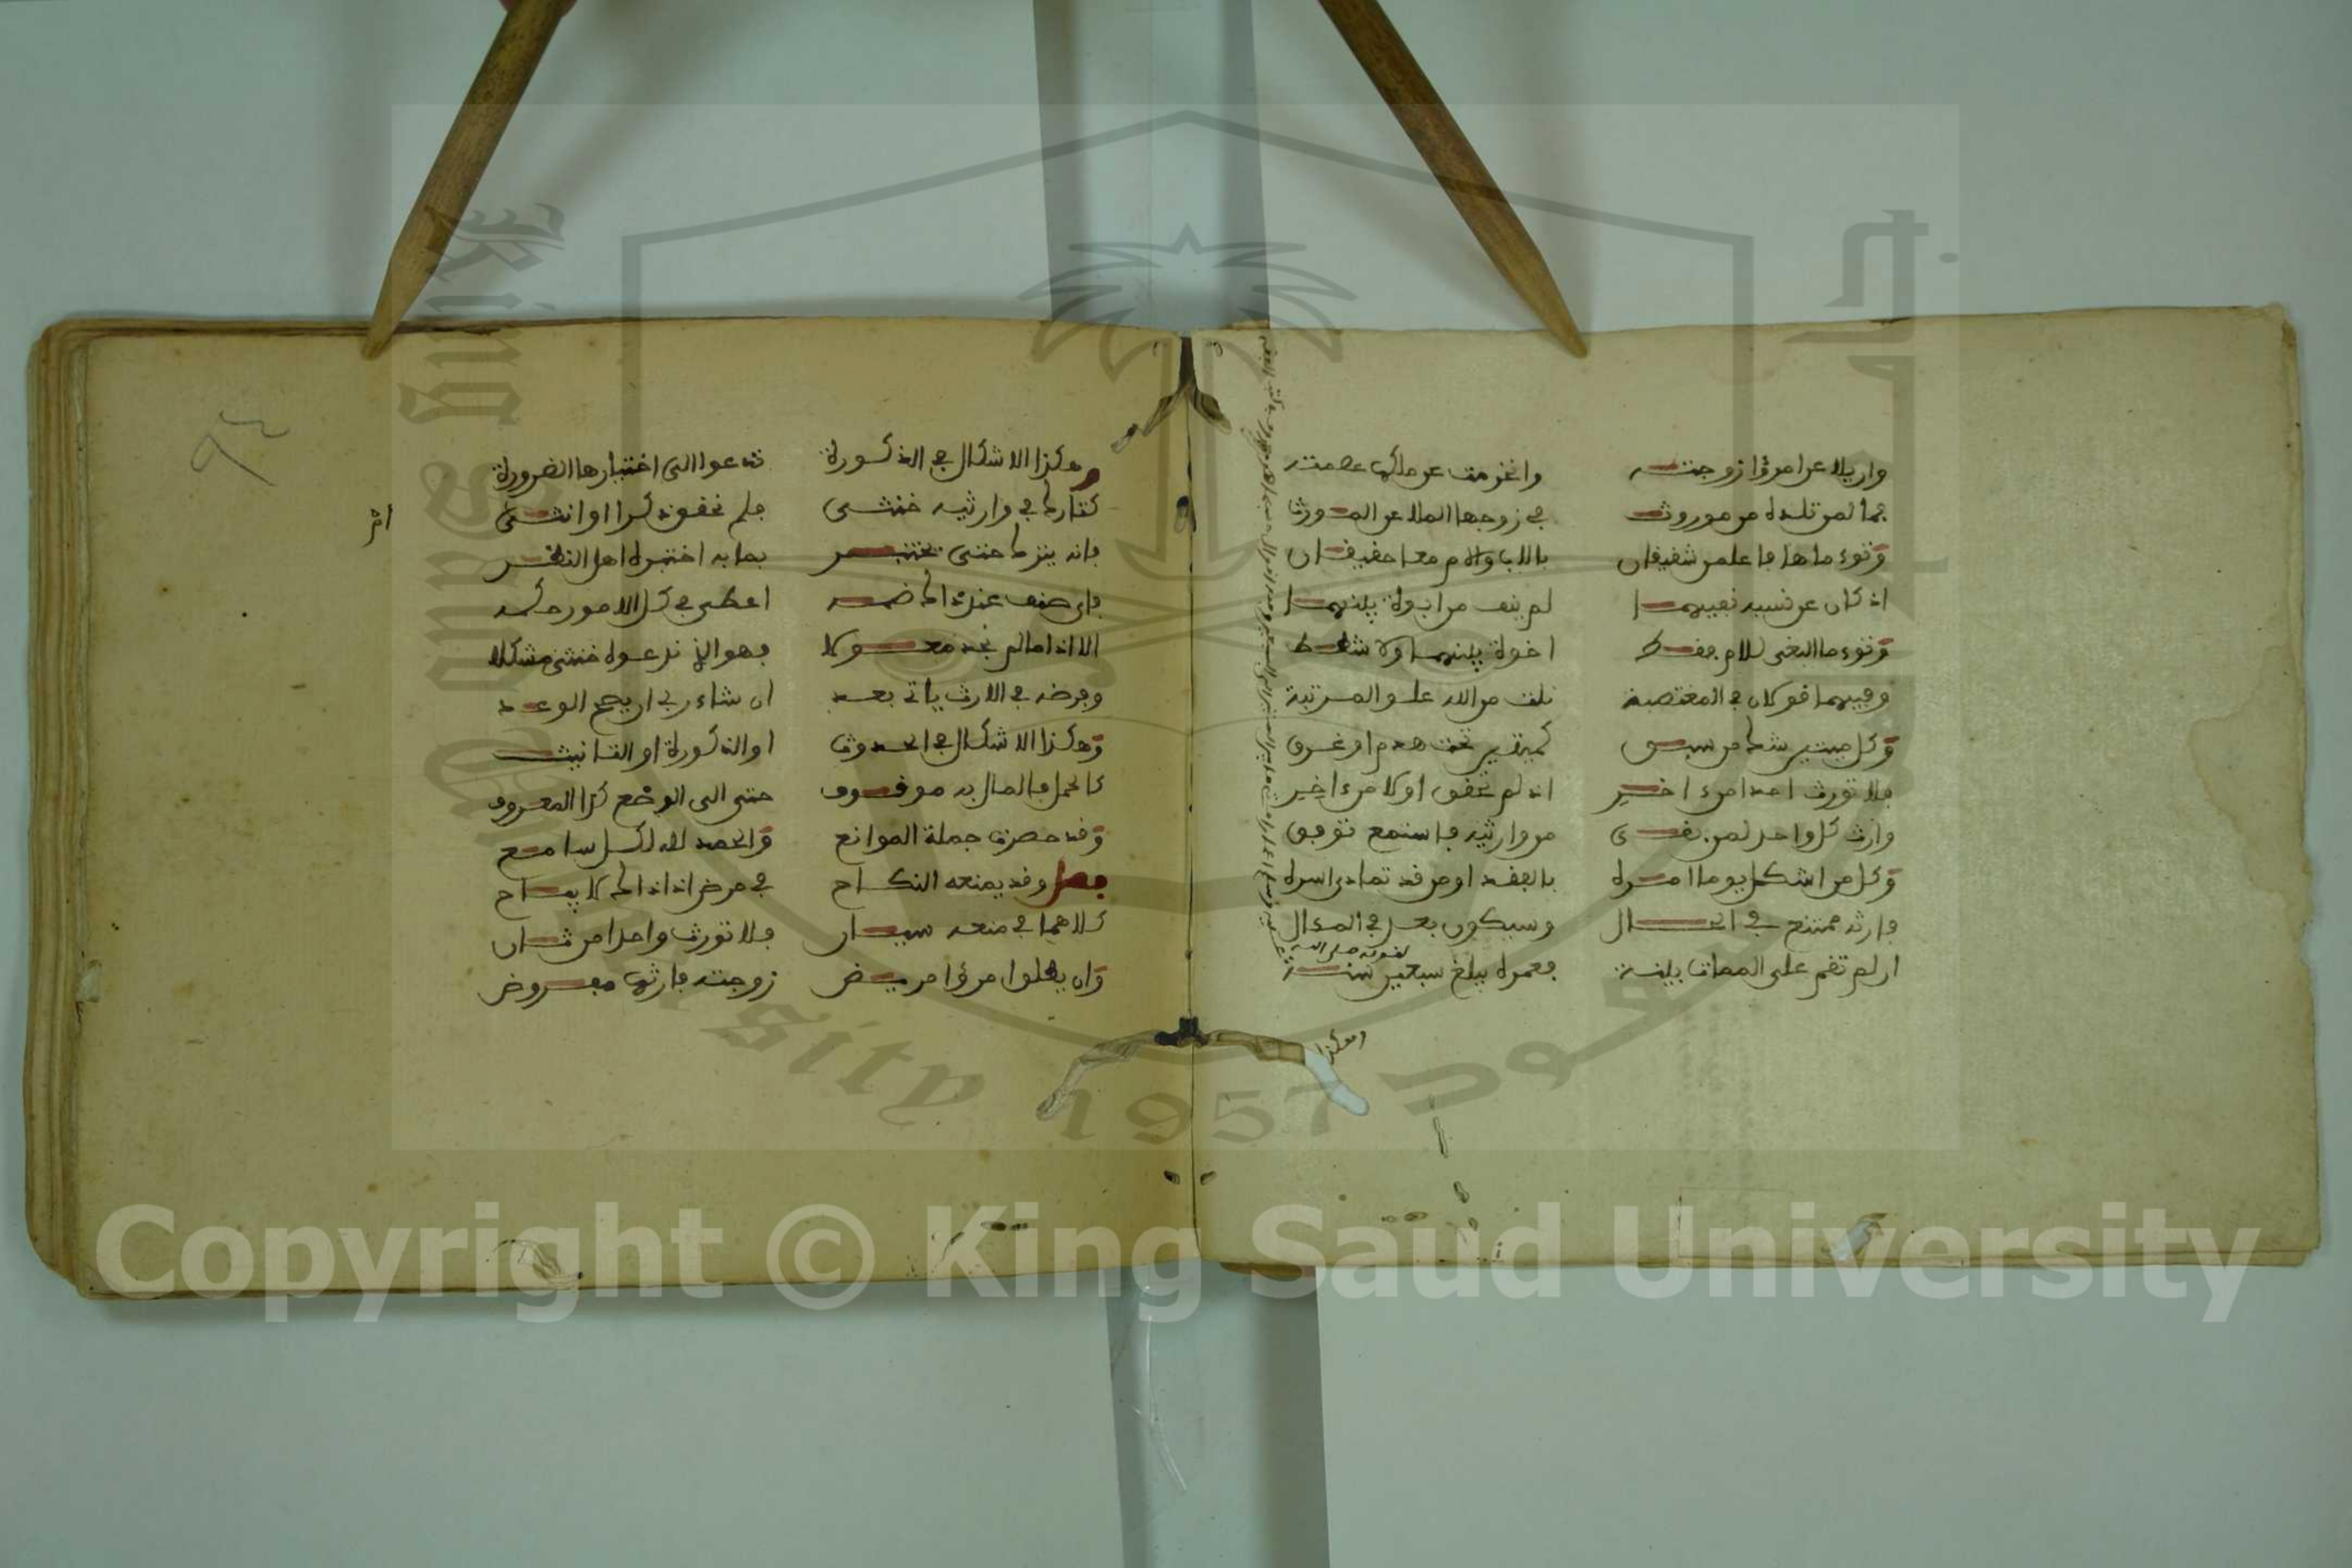 وان يلاعن امرؤ زوجته وانخرمت عن ملكها عصمته
فما لمن تلده من موروث في زوجها الملاعن الموروث
وتوءماها فاعلمن شقيقان بالاب والام معا حقيقان
اذ كان عن نسبه نفيهما لم ينف من ابوة بينهما
وتوءما البغي للام فقط اخوة بينهما ولا شطط
وفيهما قولان في المغتصبة نلت من الله علو المرتبة
وكل ميتين شك من سبق كميتين تحت هدم او غرق
فلا تورث احدا من اخير اذ لم تحقق اولا من اخير
وارث كل واحد لمن بقي من وارثيه فاستمع توفق
وكل من اشكل يوما امره بالفقد او من قد تمادى اسره
فارثه ممتنع في الحال وسيكون بعد في المـٔال
ان لم تقم على الممات بينة فعمره يبلغ سبعين سنة
لقوله صلى الله
وهكذا
وهكذا الاشكال في الذكورة تدعو الى اختبارها الضرورة
كتارك في وارثيه خنثى فلم تحقق ذكرا او انثى
فانه يترك حتى يختبر بما به اختبره اهل النظر
فاي صنف عنده الحاكم ضمه اعطي في كل الامور حكمه
الا اذا ما لم نجد معولا فهو الذي ندعوه خنثى مشكلا
وفرضه في الارث ياتي بعد ان شاء ربي ان يصح الوعد
وهكذا الاشكال في الحدوث او الذكورة او التانيث
كالحمل فالمال به موقوف حتى الى الوضع كذا المعروف
وقد حصرت جملة الموانع والحمد لله لكل سامع
فصل وقد يمنعه النكاح في مرض اذ ذاك لا يباح
كلاهما في منعه سيان فلا تورث واحدا من ثان
وان يطلق امرؤ مريض زوجته فارثها مفروض
٩٤